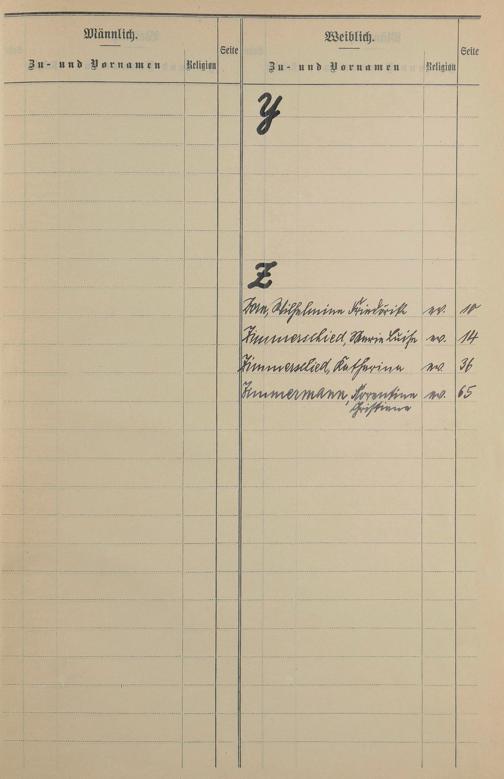 Männlich.
Zu- und Vornamen
Religion
Seite
Weiblich.
Zu- und Vornamen
Religion
Seite
Y
Z
Zorn, Wilhelmine Friedrike ev. 10
Zimmerschied, Marie Luise ev. 14
Zimmerschied, Katharina ev. 36
Zimmermann, Florentine ev. 65
Christiane